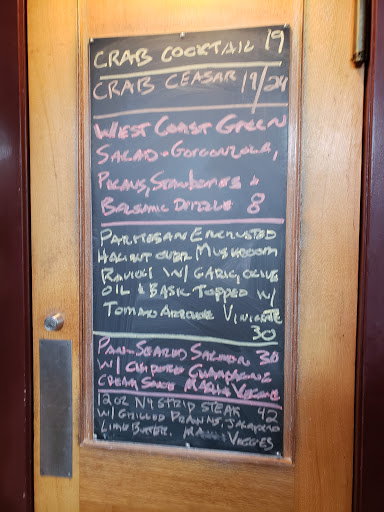 CRAB COCKTAIL 19
CRAB CEASAR 19/24
WEST COAST GREEN
SALAD - GORGONZOLA,
PECANS, STRAWBERRIES &
BALSAMIC DRIZZLE 8
PARMESAN ENCRUSTED
HALIBUT OVER MUSHROOM
RAVIOLI W/ GARLIC, OLIVE
OIL & BASIL TOPPED W/
TOMATO VINIGRETTE
30
PAN-SEARED SALMON 30
W/ CHAMPAGNE
CREAM SAUCE VEGGIE
12 OZ NY STRIP STEAK 42
W/ GRILLED PRAWNS, JALAPENO
LIME BUTTER, VEGGIES